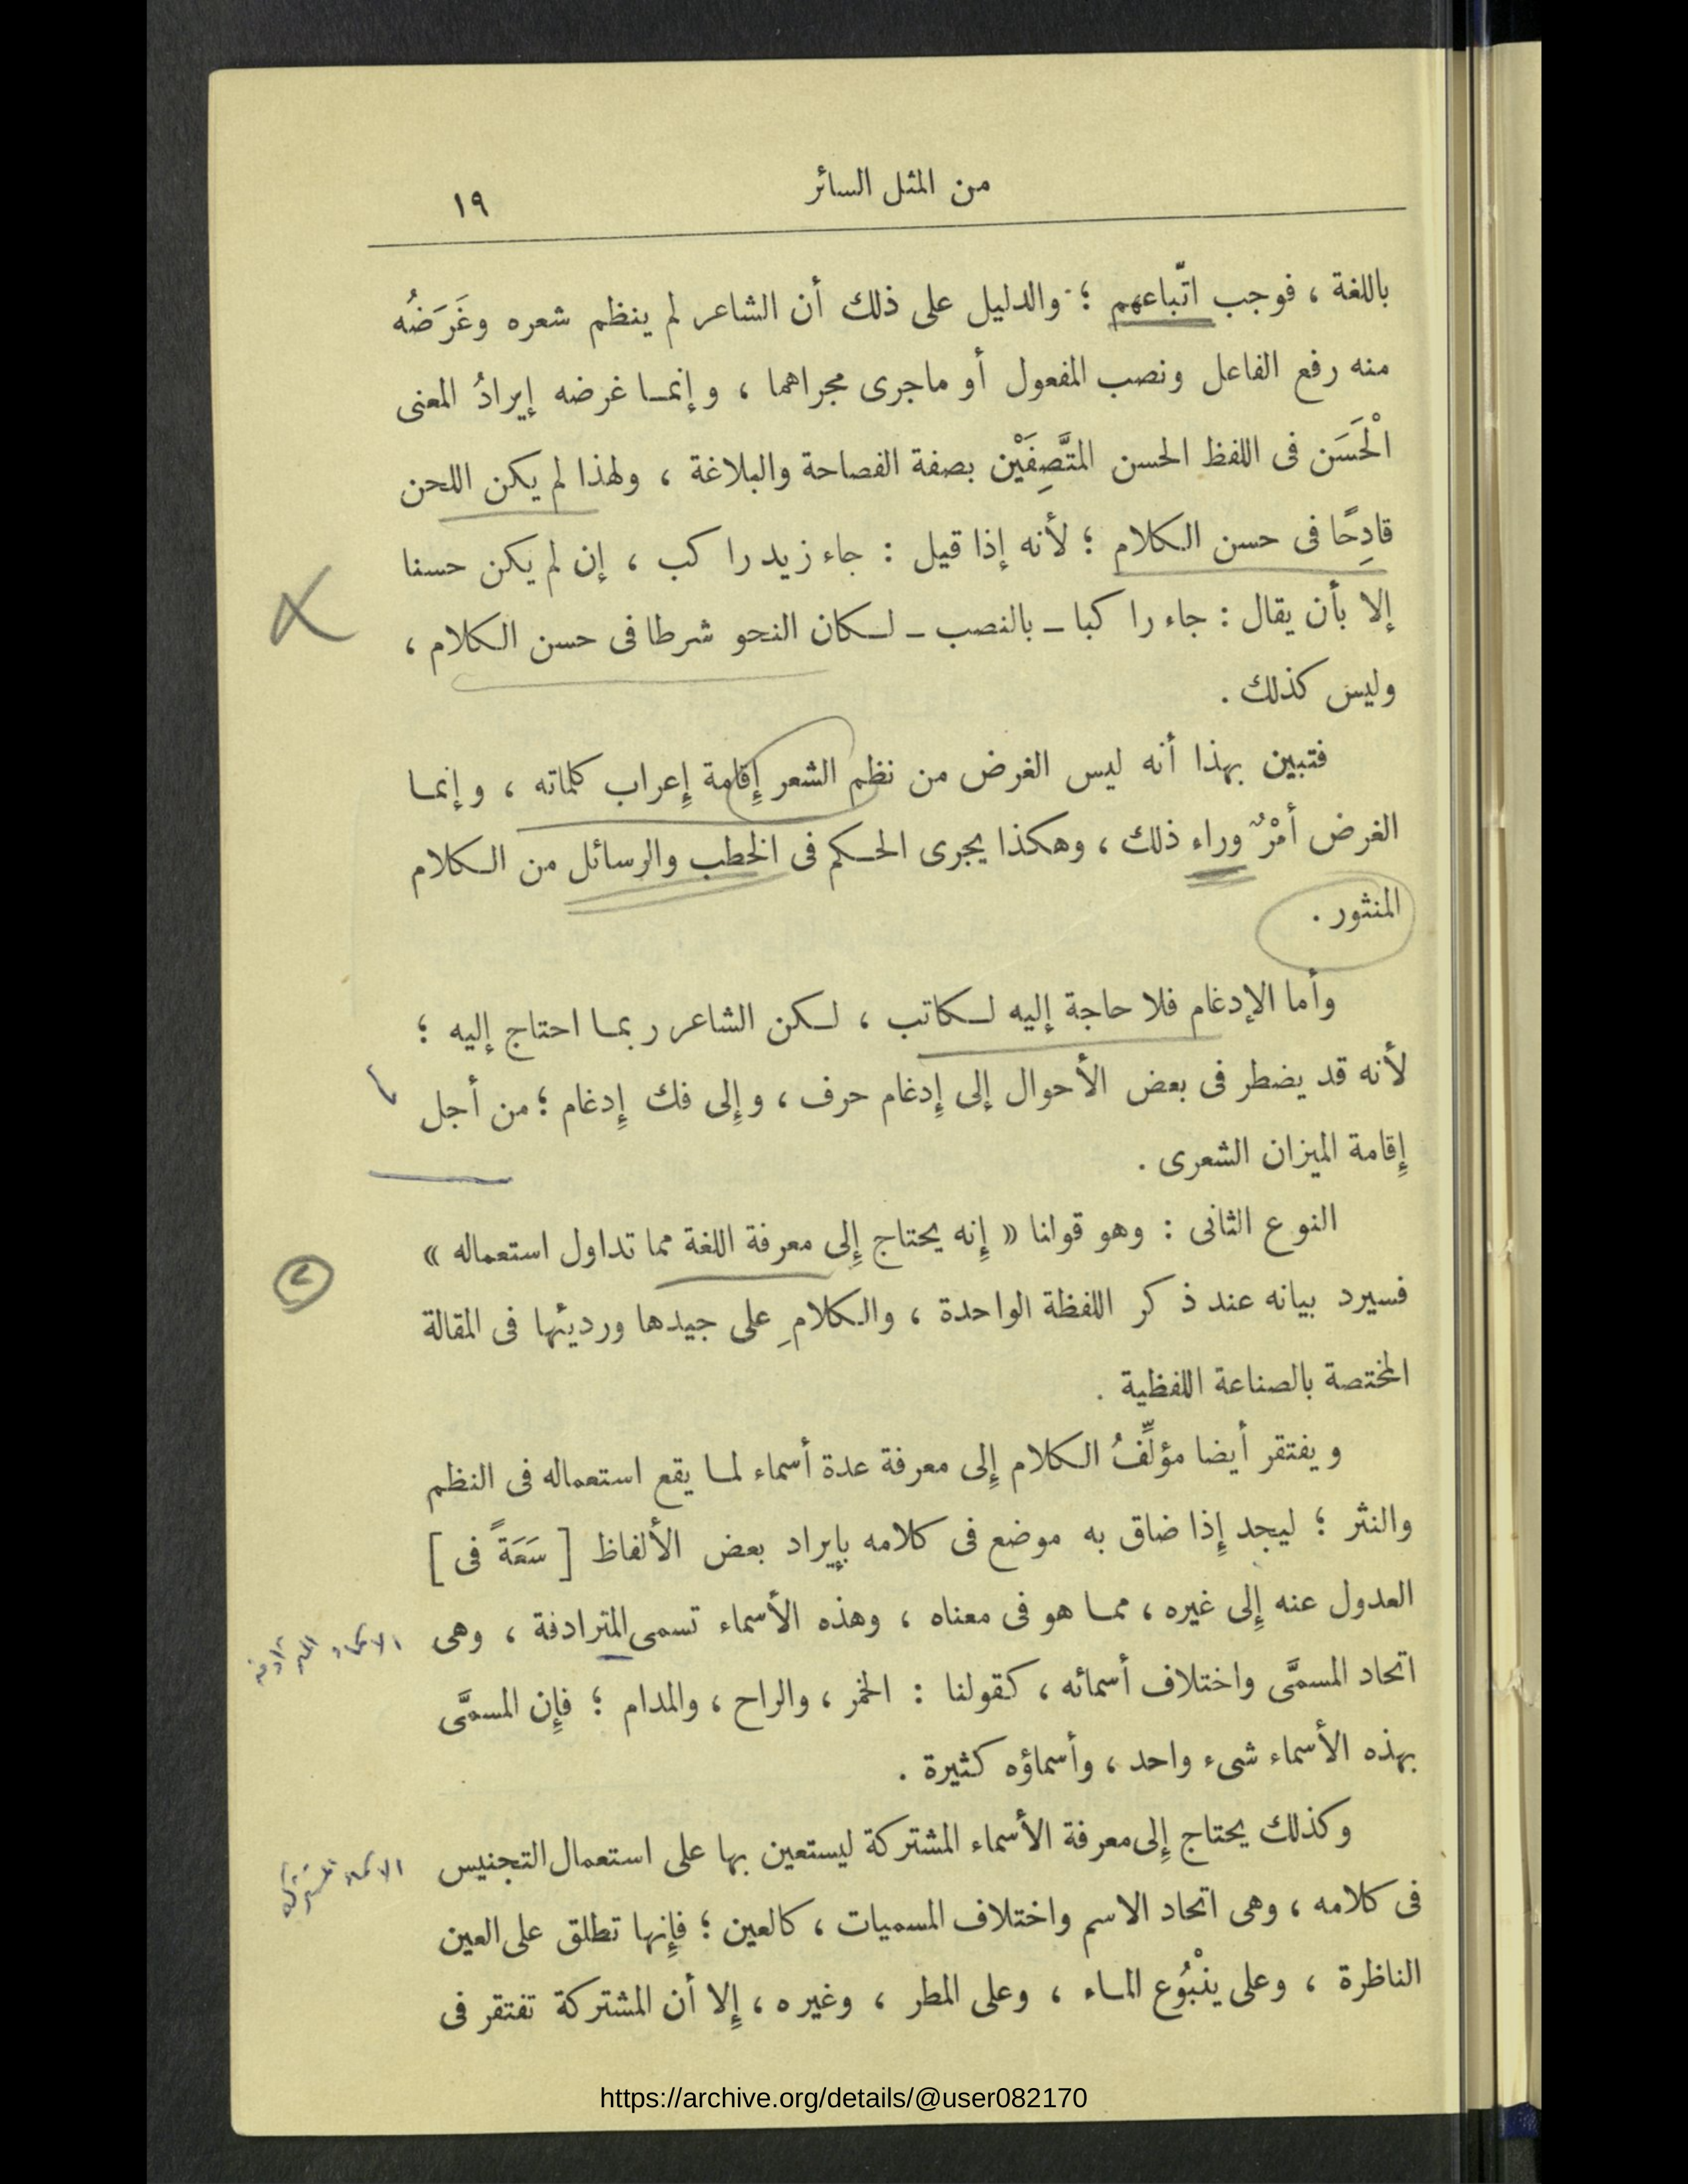 من المثل السائر
١٩
باللغة ، فوجب اتّباعهم ؛ والدليل على ذلك أن الشاعر لم ينظم شعره وغَرَضُه
منه رفع الفاعل ونصب المفعول أو ماجرى مجراهما ، وإنمـا غرضه إيرادُ المعنى
الْحَسَن فى اللفظ الحسن المتَّصِفَيْن بصفة الفصاحة والبلاغة ، ولهذا لم يكن اللحن
قادِحًا فى حسن الـكلام ؛ لأنه إذا قيل : جاء زيد راكب ، إن لم يكن حسنا
إلا بأن يقال : جاء راكبا ــ بالنصب ــ لـكان النحو شرطا فى حسن الـكلام ،
وليس كذلك .
فتبين بهذا أنه ليس الغرض من نظم الشعر إِقامة إِعراب كلماته ، وإنمـا
الغرض أمْرٌ وراء ذلك ، وهكذا يجرى الحـكم فى الخطب والرسائل من الـكلام
المنثور .
وأما الإدغام فلا حاجة إليه لـكاتب ، لـكن الشاعر ربمـا احتاج إليه ؛
لأنه قد يضطر فى بعض الأحوال إلى إِدغام حرف ، وإِلى فك إِدغام ؛ من أجل
إِقامة الميزان الشعرى .
النوع الثانى : وهو قولنا « إِنه يحتاج إِلى معرفة اللغة مما تداول استعماله »
٢
فسيرد بيانه عند ذكر اللفظة الواحدة ، والـكلامِ على جيدها ورديئها فى المقالة
المختصة بالصناعة اللفظية .
ويفتقر أيضا مؤلِّفُ الـكلام إِلى معرفة عدة أسماء لمـا يقع استعماله فى النظم
والنثر ؛ ليجد إِذا ضاق به موضع فى كلامه بإيراد بعض الألفاظ [ سَعَةً فى ]
العدول عنه إِلى غيره ، ممـا هو فى معناه ، وهذه الأسماء تسمى المترادفة ، وهى
الاسماء المترادفة
اتحاد المسمَّى واختلاف أسمائه ، كـقولنا : الخمر ، والراح ، والمدام ؛ فإِن المسمَّى
بهذه الأسماء شىء واحد ، وأسماؤه كثيرة .
وكذلك يحتاج إِلى معرفة الأسماء المشتركة ليستعين بها على استعمال التجنيس
الاسماء المشتركة
فى كلامه ، وهى اتحاد الاسم واختلاف المسميات ، كالعين ؛ فإِنها تطلق على العين
الناظرة ، وعلى ينْبُوع المـاء ، وعلى المطر ، وغيره ، إِلا أن المشتركة تفتقر فى
https://archive.org/details/@user082170